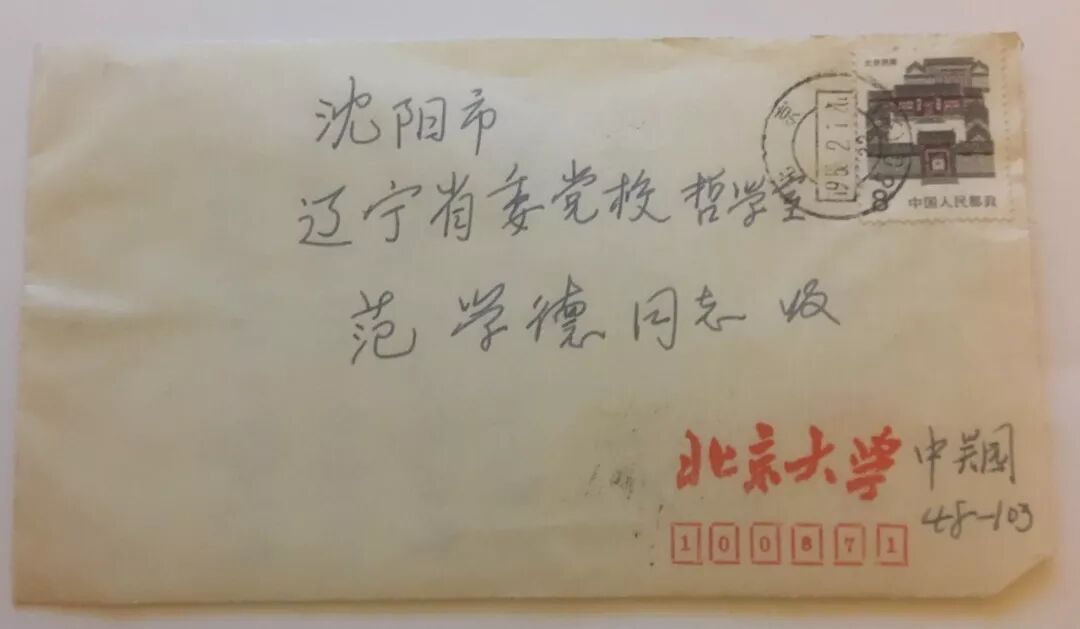 北京民居
8
中国人民邮政
沈阳市
辽宁省委党校 哲学室
范学德同志 收
北京大学 中关园
48-103
100871